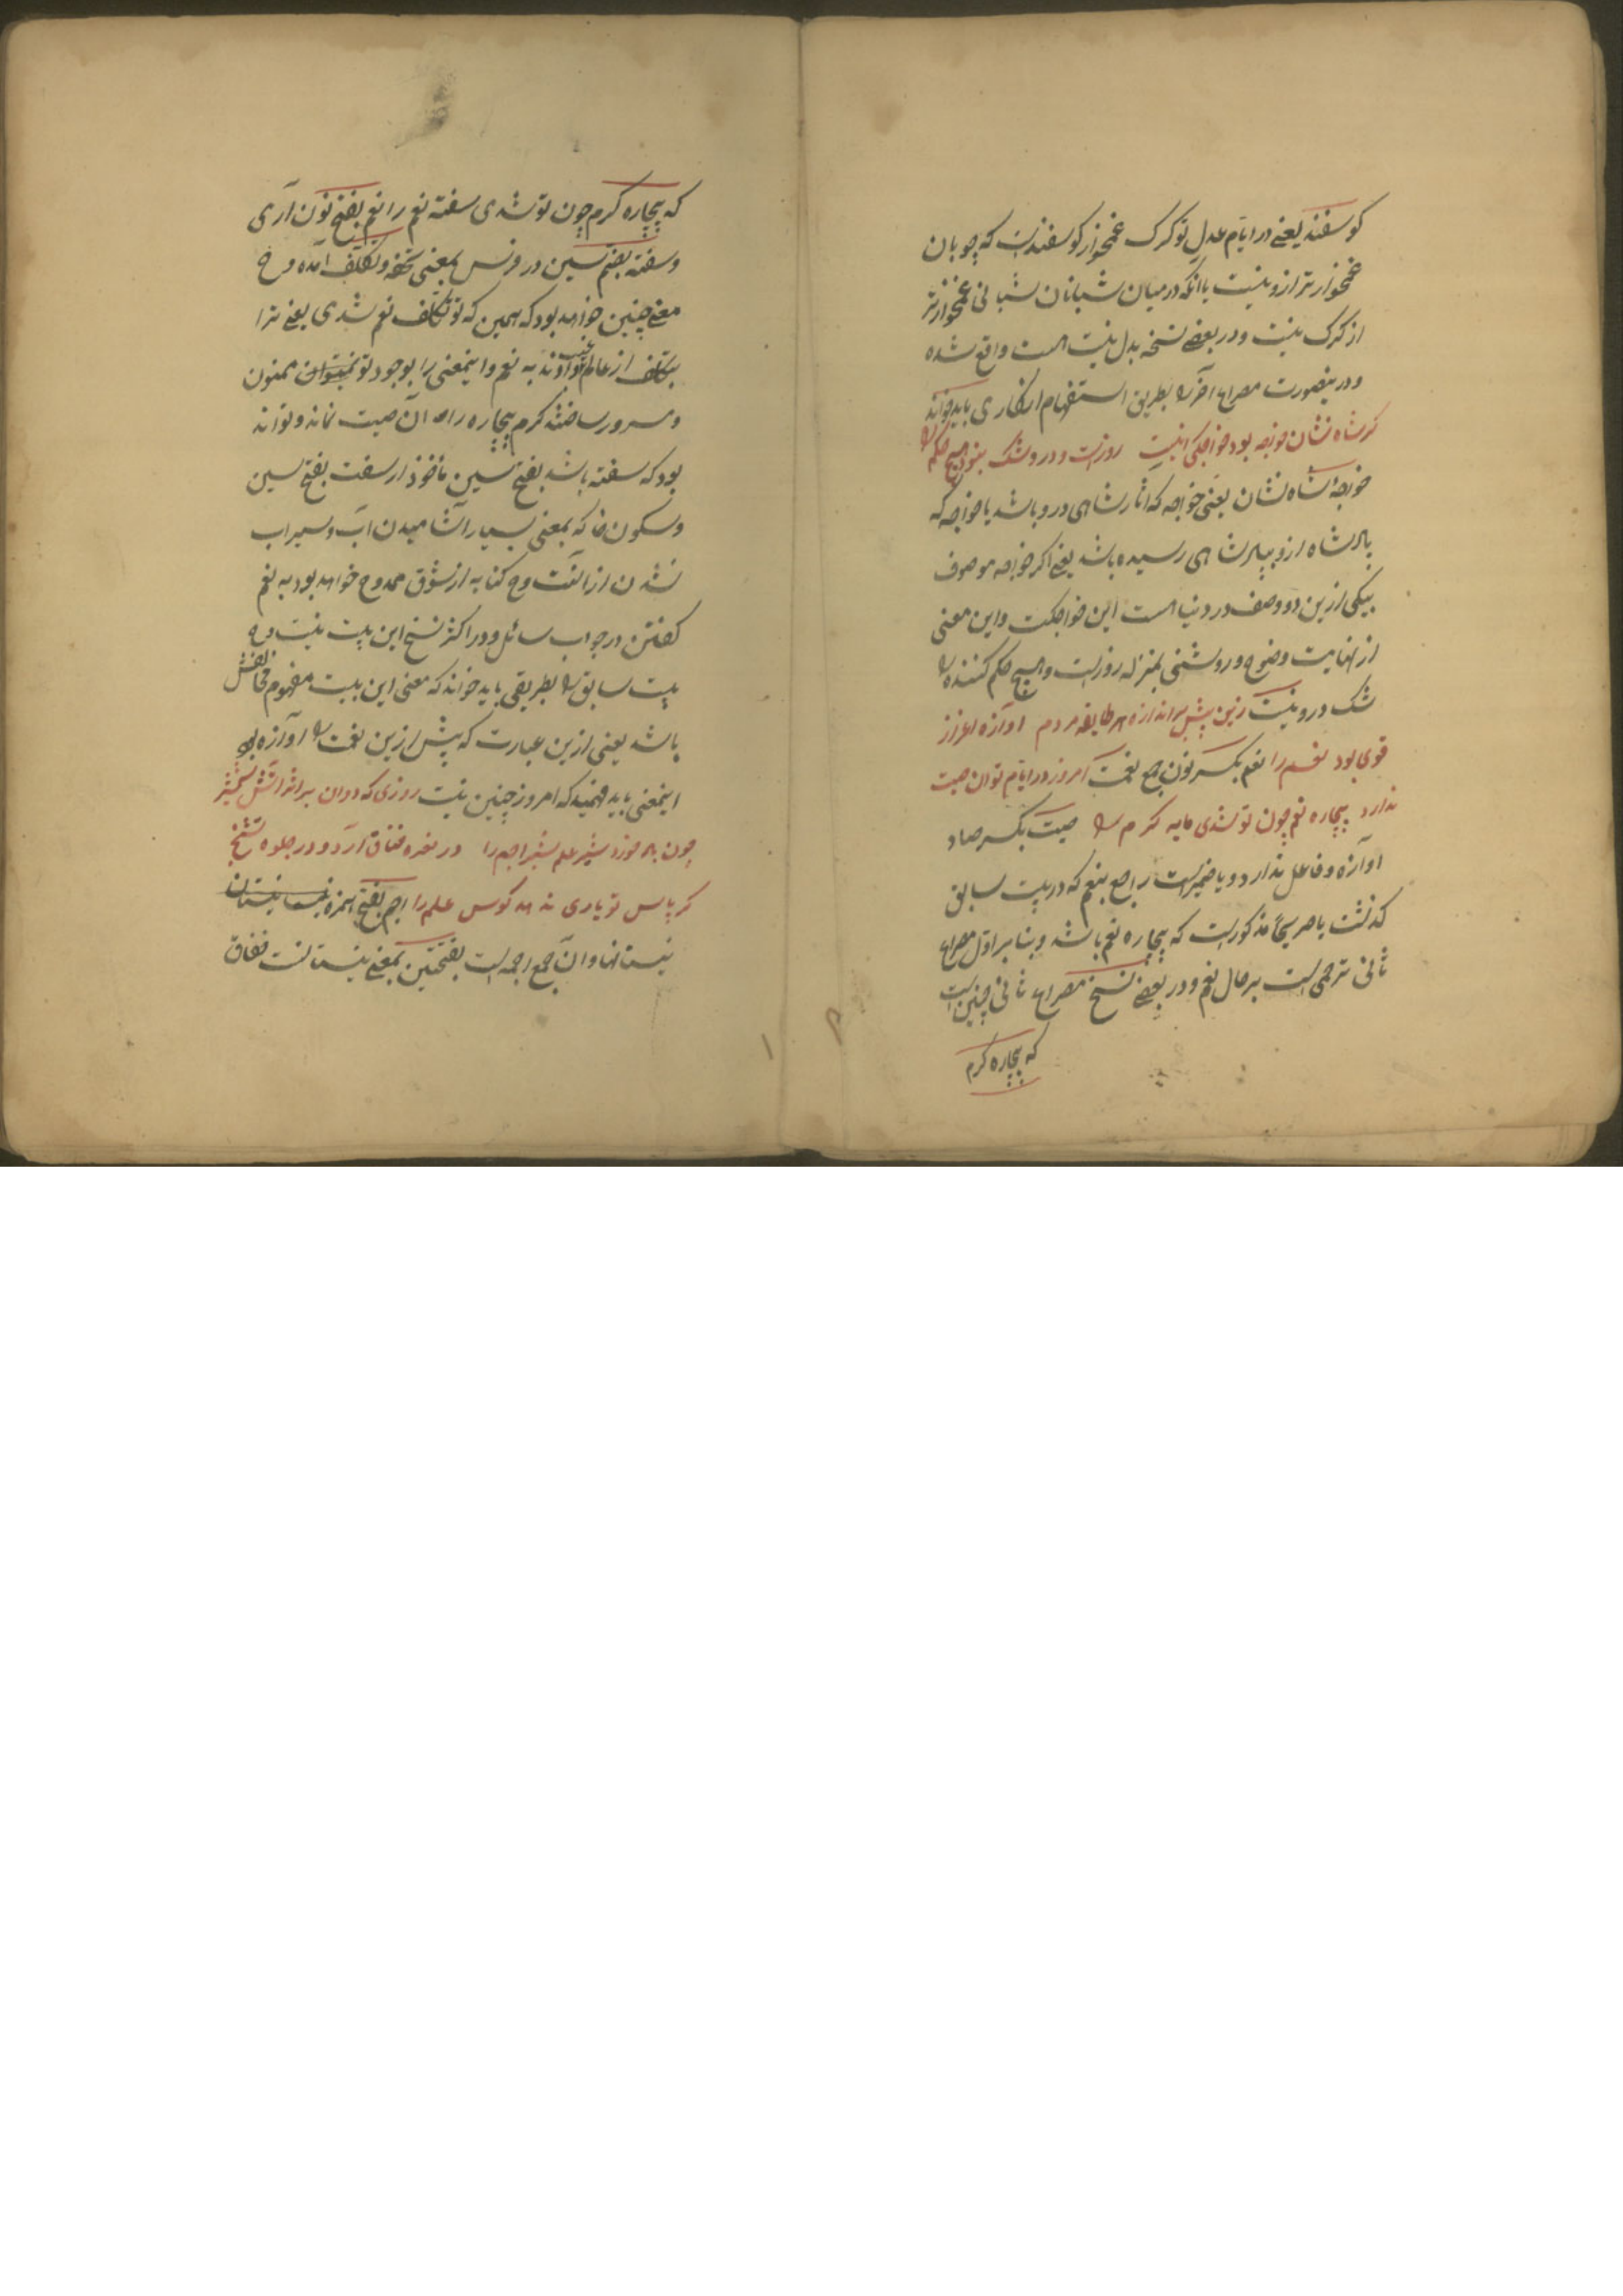 کوسفند یعنی در ایام عدل تو کرک غمخوار کوسفندست که چوبان
غمخوارتر ازو نیست با آنکه در میان شبانان شبانی غمخوارتر
از کرک نیست و در بعضی نسخه بدل نیست است واقع شده
و درینصورت مصراع آخر را بطریق استفهام انکاری باید خواند
کر شاه نشان خواجه بود خواجکی اینست روزست و درو شک نبود هیچ حکم را
خواجهٔ شاه نشان یعنی خواجه که اثار شاهی درو باشد یا خواجه که
پادشاه ازو بپادشاهی رسیده باشد یعنی اکر خواجه موصوف
بیکی ازین دو وصف در دنیا است این خواجکست و این معنی
از نهایت وضوح و روشنی بمنزله روزست و هیچ حکم کننده را
شک درو نیست زین پیش براندازه هر طایفه مردم اوازه اعزاز
قوی بود نعم را نعم بکسر نون جمع نعمت امروز در ایام تو آن صیت
ندارد بیچاره نعم چون تو شدی مایه کرم را صیت بکسر صاد
اوازه و فاعل ندارد و یا ضمیرست راجع بنعم که در بیت سابق
کذشت یا صریحا مذکورست که بیچاره نعم باشد و بنابر اول مصراع
ثانی ترحمی است بر حال نعم و در بعضی نسخ مصراع ثانی چنین است
که بیچاره کرم
که بیچاره کرم چون تو شدی سفته نعم را نعم بفتح نون آری
و سفته بضم سین در فرس بمعنی تحفه و تکلف آمده و ح
معنی چنین خواهد بود که همین که تو تکلف نعم شدی یعنی ترا
بتکلف از عالم غیب آوردند به نعم و اینمعنی را بوجود تو نمیتوان ممنون
و مسرور ساختند کرم بیچاره را آن صیت نماند و تواند
بود که سفته باشد بفتح سین ماخوذ از سفت بفتح سین
و سکون فا که بمعنی بسیار آشامیدن آب و سیراب
نشدن از آنست و ح کنایه از شوق ممدوح خواهد بود به نعم
کفتن در جواب سائل و در اکثر نسخ این بیت نیست و ح
بیت سابق را بطریقی باید خواند که معنی این بیت مفهوم مخالفش
باشد یعنی ازین عبارت که پیش ازین نعمت را اوازه بود
اینمعنی باید فهمید که امروز چنین نیست روزی که دوان بر اثر آتش شمشیر
چون باد خورد شیر علم شیر اجم را در نعره خناق آرد و در جلوه تشنج
کرپاس تو یاری ندهد کوس علم را اجم بفتح همزه نیستان
نیستانها و آن جمع اجمه است بفتحتین بمعنی نیستانست خناق